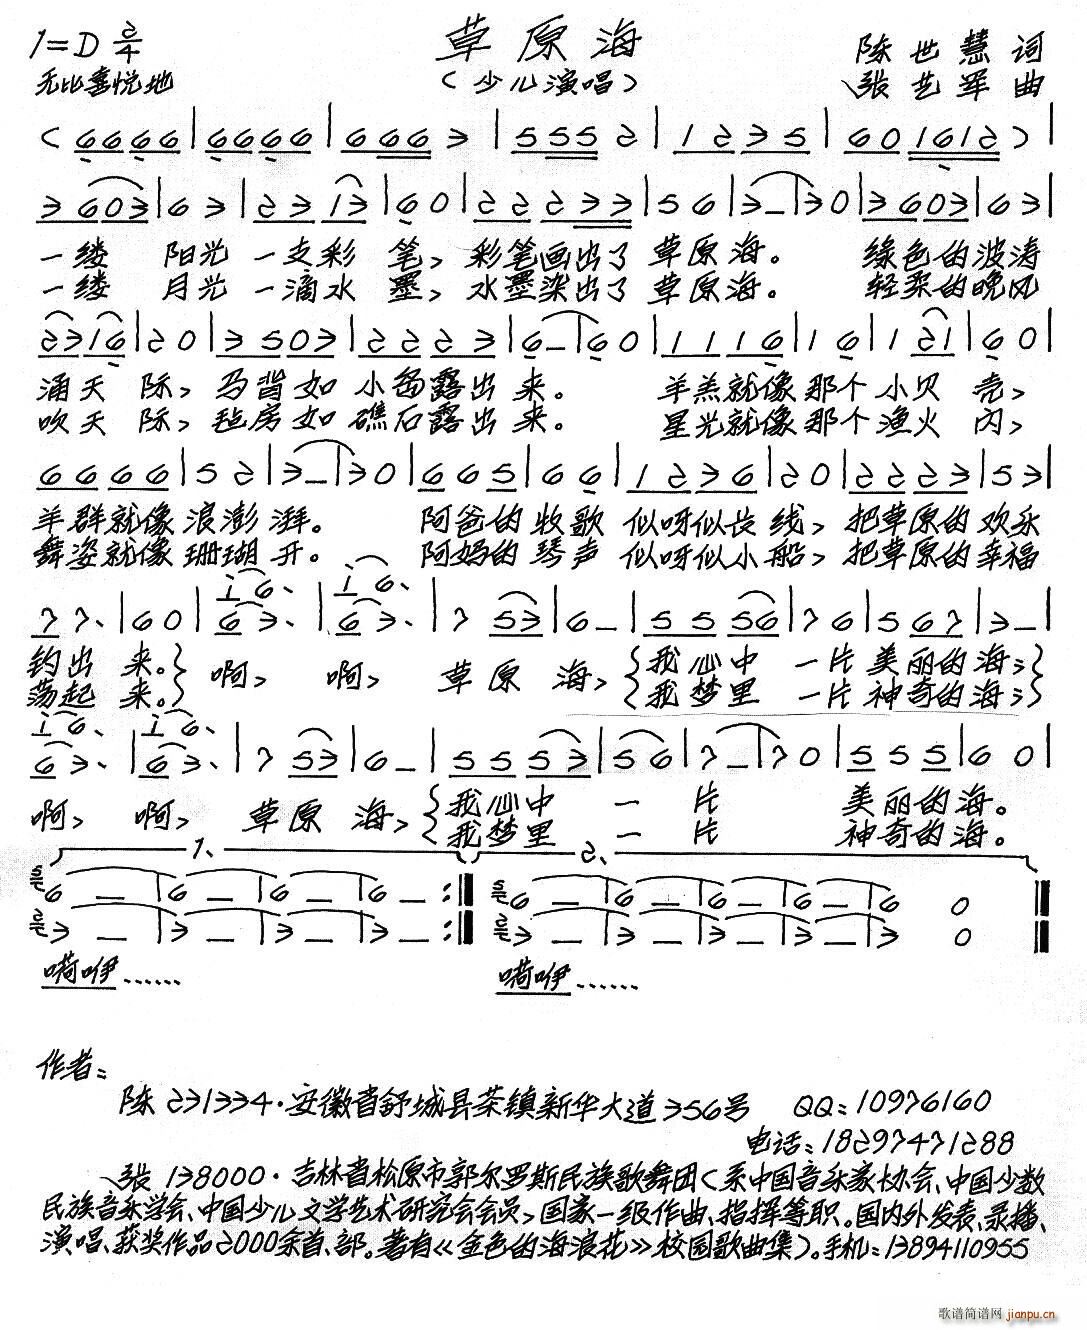 1=D 2/4
草原海
(少儿演唱)
陈世慧 词
张艺军 曲
无比喜悦地
( 6 6 6 6 | 6 6 6 6 | 6 6 6 3 | 5 5 5 2 | 1 2 3 5 | 6 0 1 6 1 2 ) |
3 6 0 3 | 6 3 | 2 3 1 3 | 6 0 | 2 2 2 3 3 | 5 6 | 3 – | 3 0 | 3 6 0 3 | 6 3 |
一缕 阳光 一支彩 笔, 彩笔画出了 草原海。 绿色的波涛
一缕 月光 一滴水 墨, 水墨染出了 草原海。 轻柔的晚风
2 3 1 6 | 2 0 | 3 5 0 3 | 2 2 2 3 | 6 – | 6 0 | 1 1 1 6 | 1 6 | 1 2 1 | 6 0 |
涌天 际, 马背如 小岛露出 来。 羊羔就像 那个 小贝 壳,
吹天 际, 毡房如 礁石露出 来。 星光就像 那个 渔火 闪,
6 6 6 6 | 5 2 | 3 – | 3 0 | 6 6 5 | 6 6 | 1 2 3 6 | 2 0 | 2 2 2 3 | 5 3 |
羊群就像 浪澎 湃。 阿爸的 牧歌 似呀似长 线, 把草原的 欢乐
舞姿就像 珊瑚 开。 阿妈的 琴声 似呀似小 船, 把草原的 幸福
i 6、 i 6、
7 7、 | 6 0 | 6 3、 | 6 3、 | 7 5 3 | 6 – | 5 5 5 6 | 7 6 | 5 6 7 | 3 – |
钓出 来。} 啊, 啊, 草 原 海, {我心中 一片 美丽的 海;}
荡起 来。} {我梦里 一片 神奇的 海;}
i 6、 i 6、
6 3、 | 6 3、 | 7 5 3 | 6 – | 5 5 5 3 | 5 6 | 7 – | 7 0 | 5 5 5 | 6 0 |
啊, 啊, 草 原 海, {我心中 一 片 美丽的 海。
{我梦里 一 片 神奇的 海。
1、 2、
6 – | 6 – | 6 – | 6 – :‖ 6 – | 6 – | 6 – | 6 – | 6 0 ‖
3 – | 3 – | 3 – | 3 – :‖ 3 – | 3 – | 3 – | 3 – | 3 0 ‖
嗬咿…… 嗬咿……
作者:
陈 231334·安徽省舒城县茶镇新华大道356号 QQ:10976160
电话:18297471288
张 138000·吉林省松原市郭尔罗斯民族歌舞团(系中国音乐家协会、中国少数
民族音乐学会、中国少儿文学艺术研究会会员,国家一级作曲、指挥等职。国内外发表、录播、
演唱、获奖作品2000余首、部。著有《金色的海浪花》校园歌曲集)。手机:13894110955
歌谱简谱网 jianpu.cn